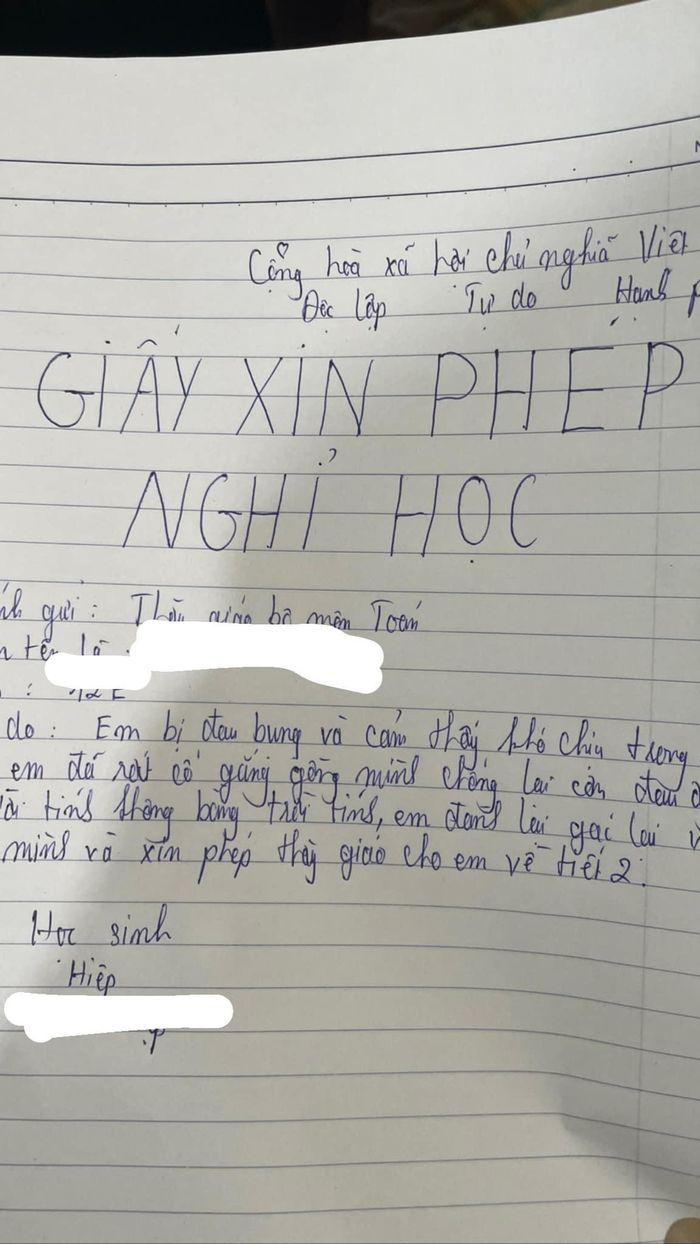 Cộng hoà xã hội chủ nghĩa Việt
Độc lập Tự do Hạnh p
GIẤY XIN PHÉP
NGHỈ HỌC
nh gửi : Thầy giáo bộ môn Toán
tên là :
: 12E
do : Em bị đau bụng và cảm thấy khó chịu trong
em đã rất cố gắng gồng mình chống lại cơn đau
tính không bằng trời tính, em đành lùi gại lại v
mình và xin phép thầy giáo cho em về tiết 2.
Học sinh
Hiệp